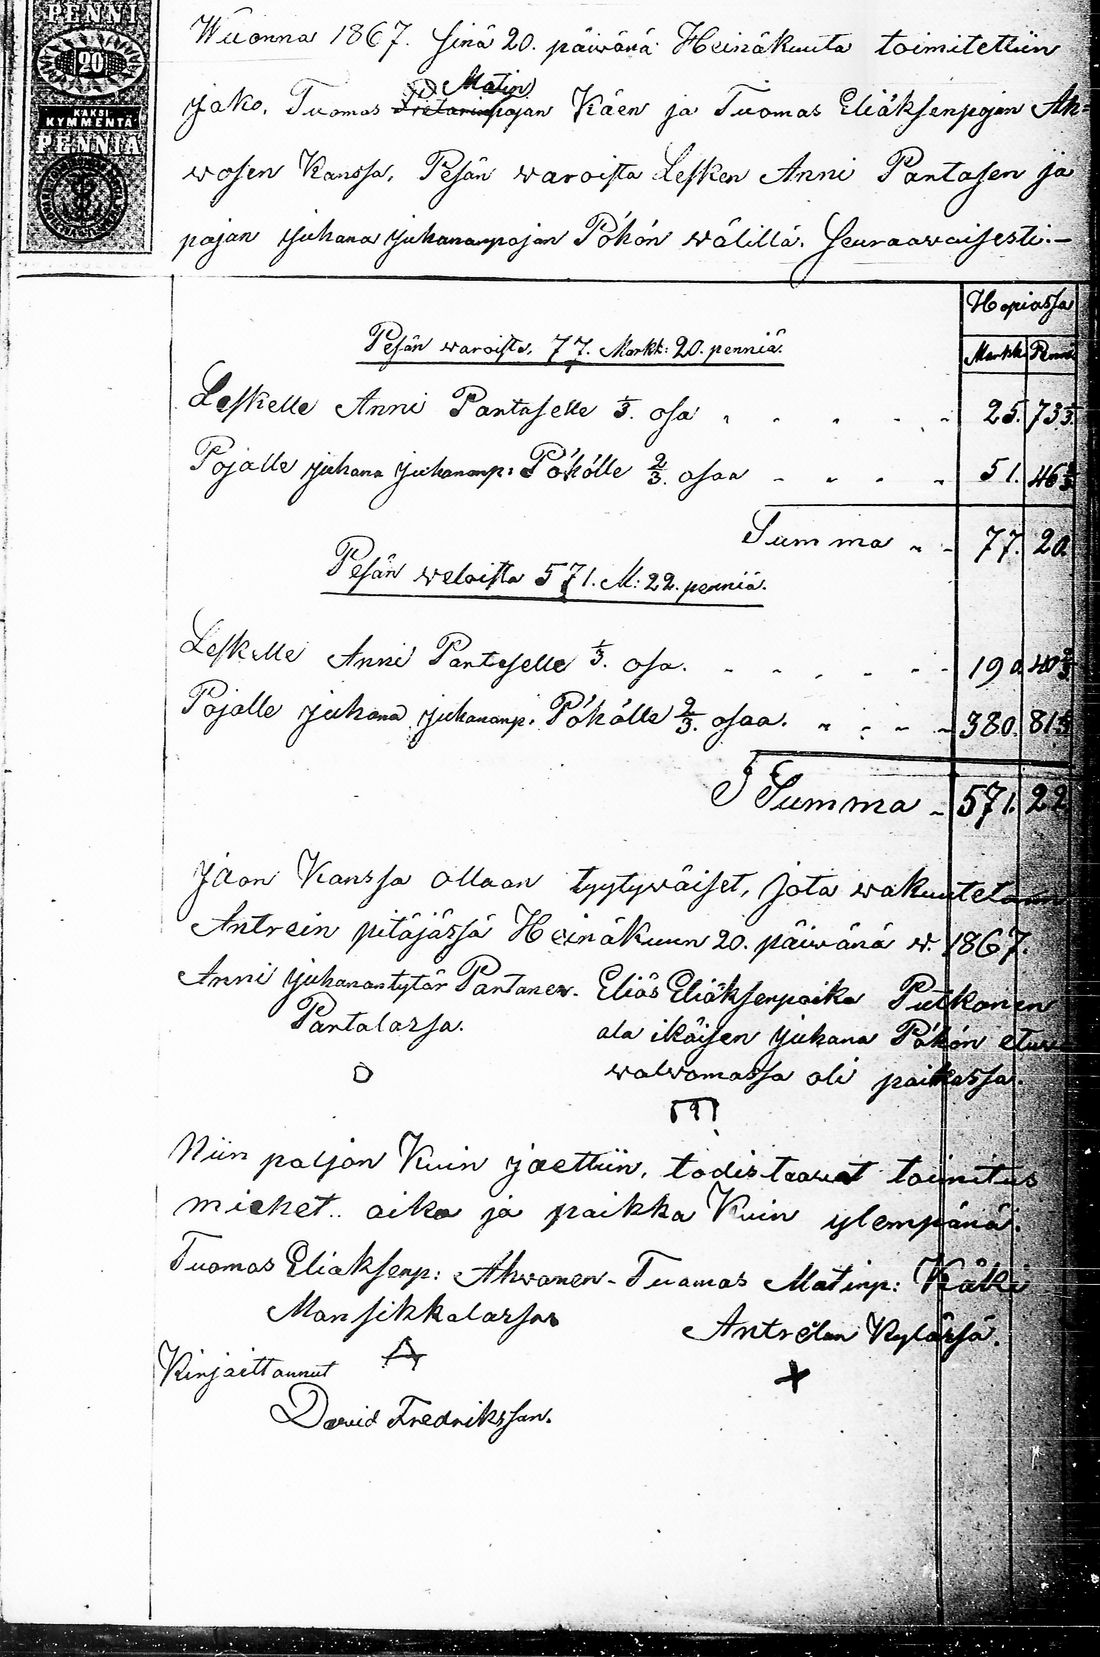 PENNI
20
KAKSI
KYMMENTÄ
PENNIÄ
Wuonna 1867. Sinä 20. päiwänä Heinäkuuta toimitettiin
Matin
jako, Tuomas pojan Käen ja Tuomas Eliäksenpojan Ah-
wosen kanssa, Pesän waroista Lesken Anni Pantasen ja
pojan Juhana Juhananpojan Pökön wälillä. Seuraawaisesti.-
Hopiassa
Pesän waroista, 77. Markk: 20. penniä.
Markk Penni
Leskelle Anni Pantaselle 1/3. osa 25. 73 1/3.
Pojalle Juhana Juhananp: Pökölle 2/3. osaa 51. 46 2/3
Summa 77. 20
Pesän weloista 571. M: 22. penniä.
Leskelle Anni Pantaselle 1/3. osa. 190. 40 2/3
Pojalle Juhana Juhananp. Pökölle 2/3. osaa. 380. 81 1/3
Summa 571. 22
Jaon kanssa ollaan tyytywäiset, jota wakuutetaan
Antrein pitäjässä Heinäkuun 20. päiwänä w. 1867.
Anni Juhanantytär Pantanen. Eliäs Eliäksenpoika Putkonen
Pantalassa. ala ikäisen Juhana Pökön etua
walwomassa oli paikassa.
Niin paljon kuin jaettiin, todistaawat toimitus
miehet.. aika ja paikka kuin ylempänä.
Tuomas Eliaksenp: Ahwonen - Tuomas Matinp: Käki
Mansikkalassa Antrëlan kylässä.
Kirjoittannut
David Fredriksson.